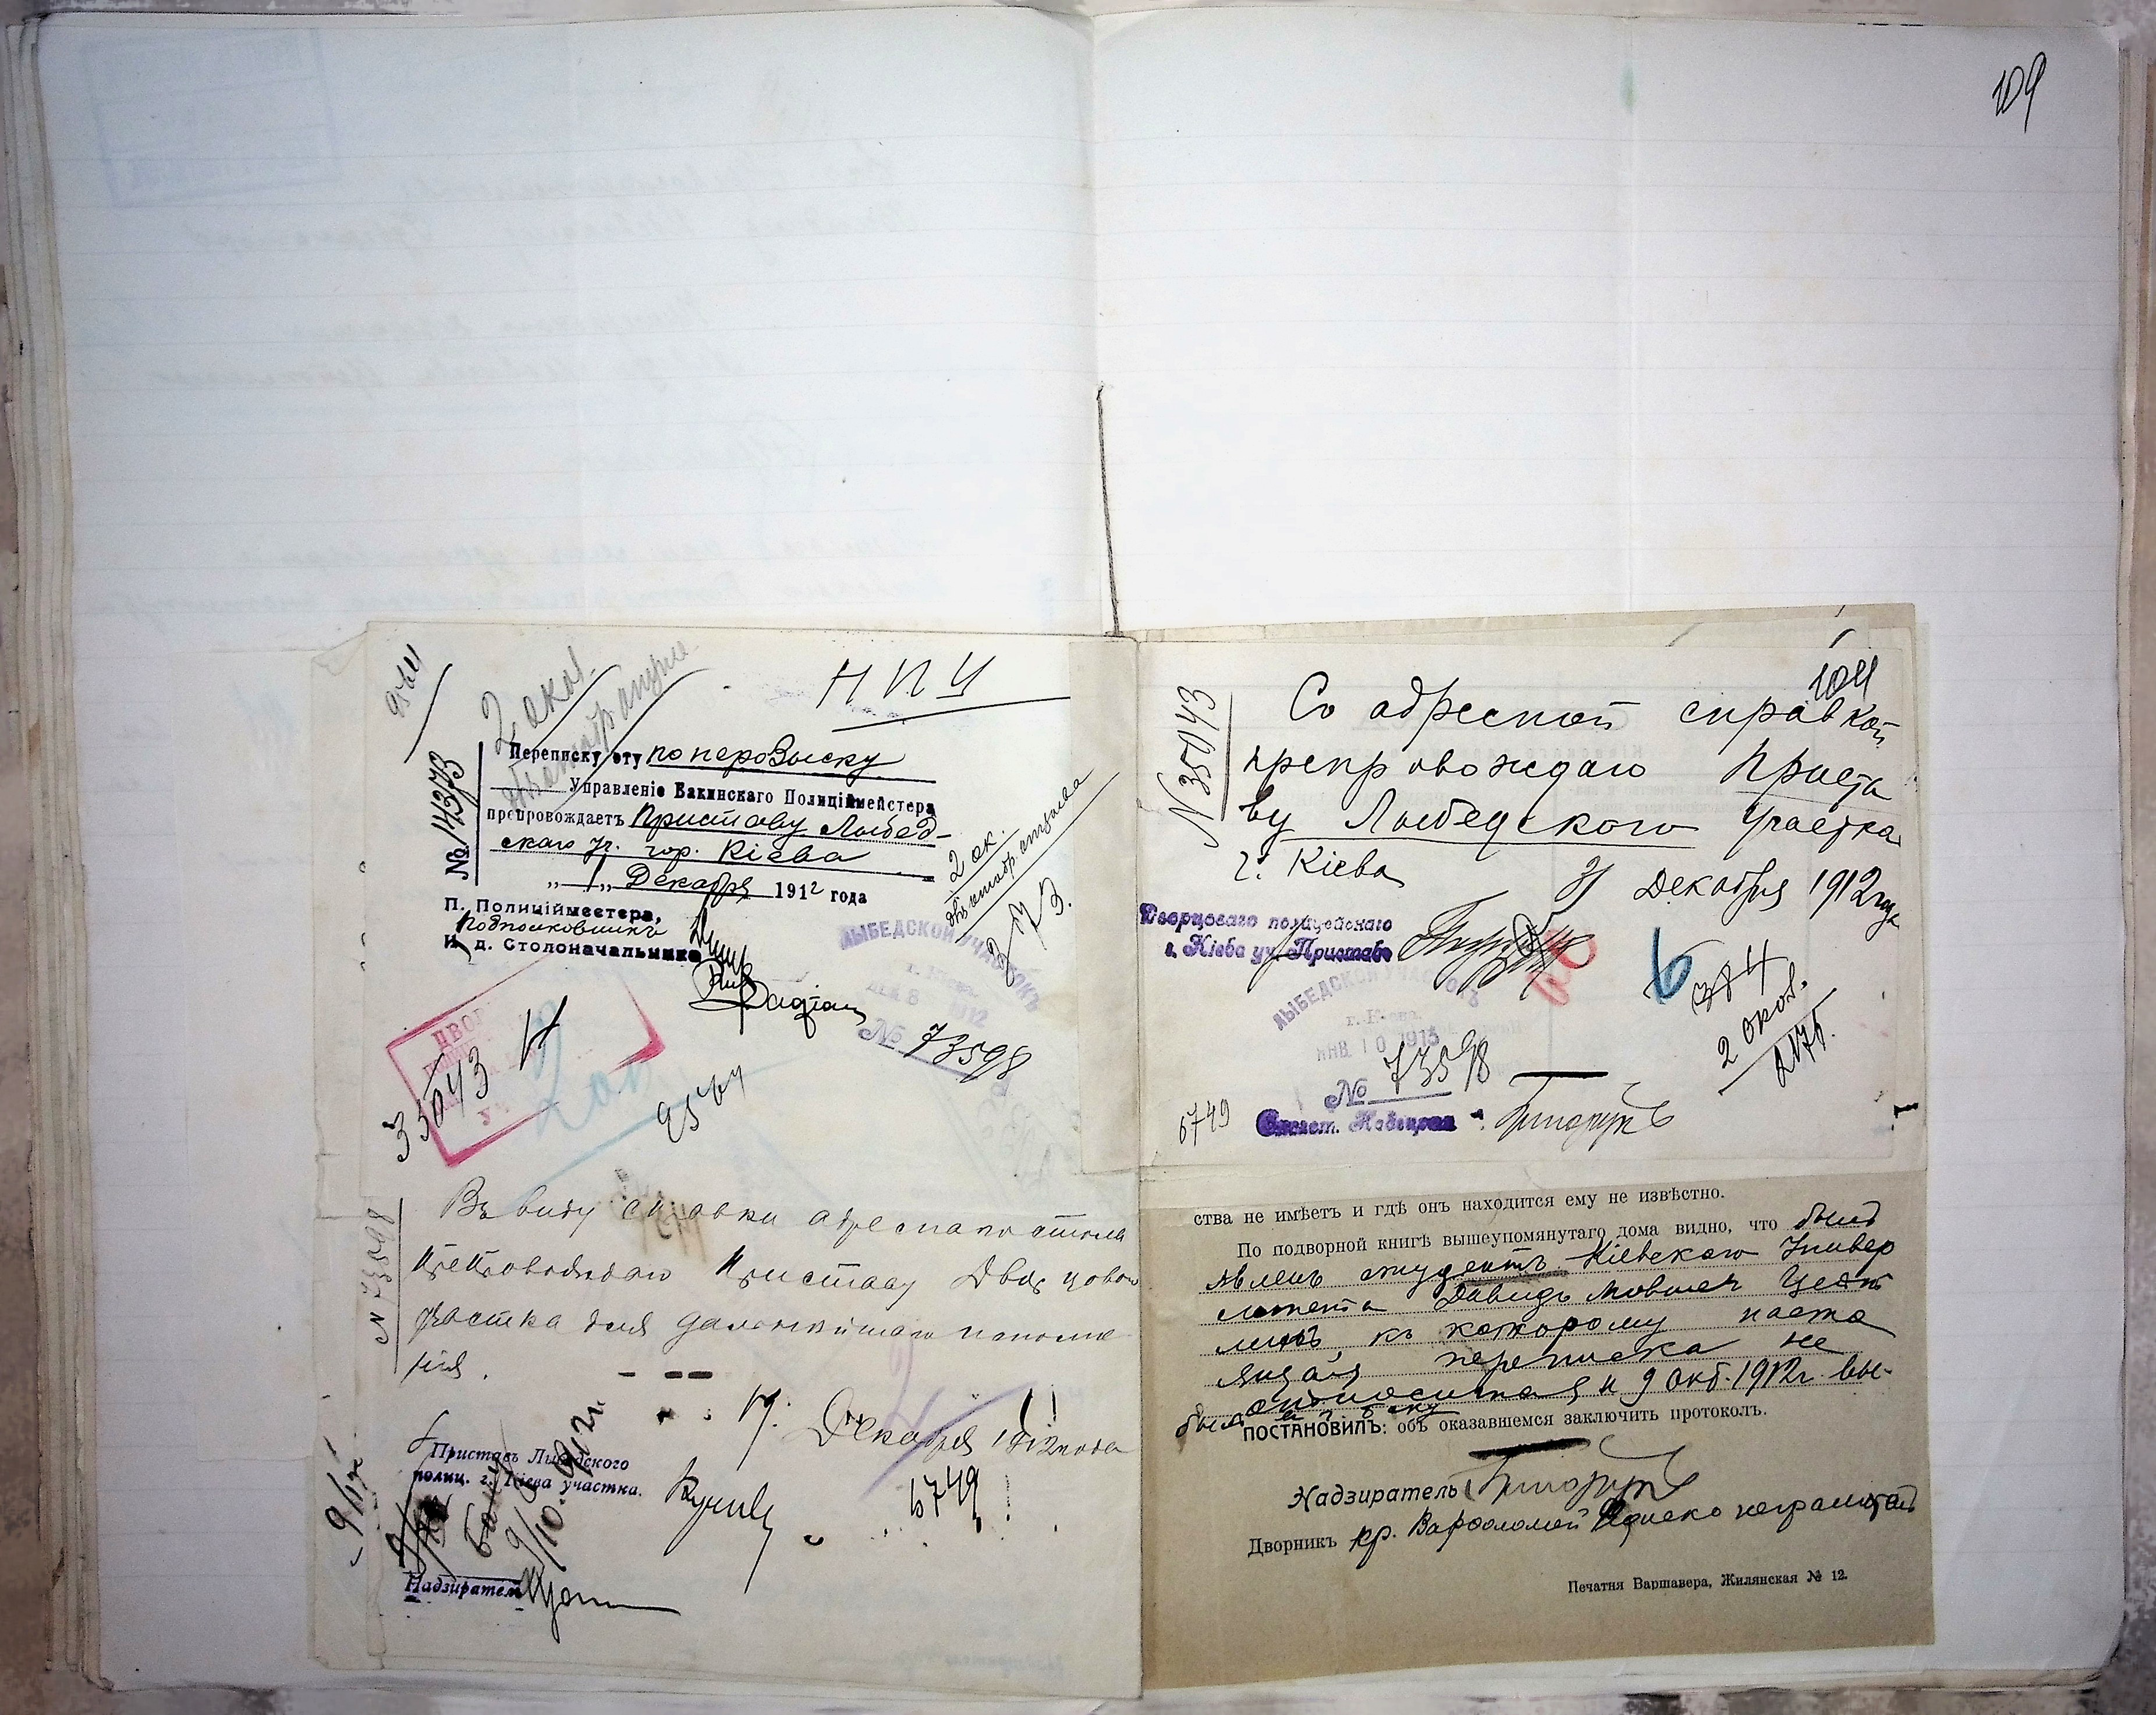 109
Н П Ч
2 окол.
№ 14373
Переписку эту по перовзыску
Управленіе Бакинскаго Полиціймейстера
препровождаетъ Приставу Лыбед-
скаго уч. гор. Кіева
„ 1 „ Декабря 1912 года
П. Полиціймейстера,
Подполковникъ
И. д. Столоначальника
2 ок.
ЛЫБЕДСКОЙ УЧАСТОКЪ
г. Кіева
ДЕК 8 1912
№ 73598
35043
9544
№ 73598
Въ виду справки адреснаго стола
препровождаю Приставу Дворцоваго
участка для дальнѣйшаго исполне
нія.
17 Декабря 1912 года
Приставъ Лыбедского
полиц. г. Кіева участка.
6749
9/10 912 г.
Надзиратель
104
№ 35043
Со адресной справкой
препровождаю Приста
ву Лыбедского Участка
г. Кіева
31 Декабря 1912 года
Дворцоваго полицейскаго
г. Кіева уч. Приставъ
6
384
2 окол.
ЛЫБЕДСКОЙ УЧАСТОКЪ
г. Кіева.
ЯНВ. 10 1913
№ 73598
6749
ства не имѣетъ и гдѣ онъ находится ему не извѣстно.
По подворной книгѣ вышеупомянутаго дома видно, что былъ
явленъ студентъ Кіевскаго Универ
ситета Давидъ Мовшев
къ которому насто
ящая переписка не
относится и 9 окт. 1912 г. вы-
былъ въ г. Баку
ПОСТАНОВИЛЪ: объ оказавшемся заключить протоколъ.
Надзиратель
Дворникъ кр. Варфоломей неграмотный
Печатня Варшавера, Жилянская № 12.